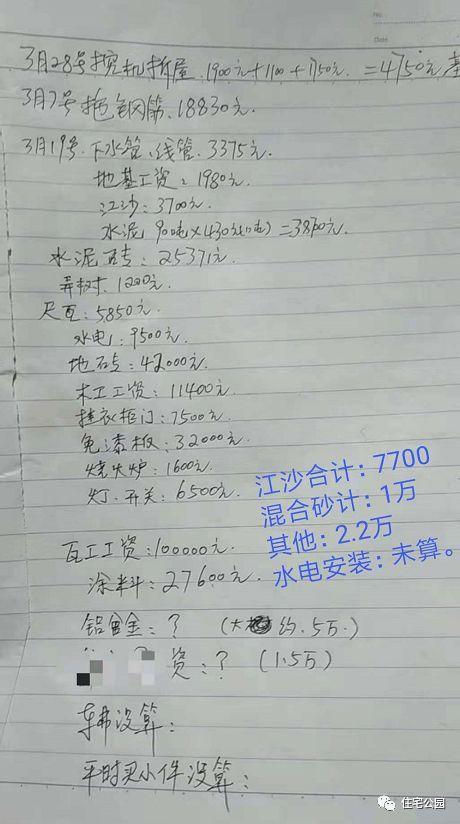 No:
Date
3月28号挖机拆屋.1900元+1100+1750元.=4750元基
3月7号拖钢筋.18830元.
3月19号.下水管、线管.3375元.
地基工资:1980元.
江沙:3700元.
水泥 90吨×430元(吨)=38700元.
水泥砖:25371元.
弄树.1200元.
尺瓦:5850元.
水电:9500元.
地石专:42000元.
木工工资:11400元.
挂衣柜门:7500元.
免漆板:32000元.
烧火炉:1600元.
灯.开关:6500元.
江沙合计:7700
混合砂计:1万
其他:2.2万
水电安装:未算。
瓦工工资:100000元.
涂料:27600元.
铝合金:? (大 约.5万.)
资:? (1.5万)
车弗没算:
平时买小件没算:
住宅公园